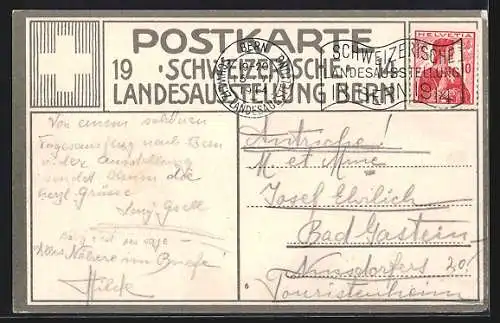 POSTKARTE
19 · SCHWEIZERISCHE · 14
LANDESAUSSTELLUNG BERN
BERN
LANDESAUSSTELLUNG
SCHWEIZERISCHE
LANDESAUSSTELLUNG
IN BERN 1914
HELVETIA
10
Von einem schönen
Tagesausflug nach Bern
u der Ausstellung
sendet Ihnen die
herzl. Grüsse
Alles Nähere im Briefe
Hilde
M et Mme
Josef Ehrlich
Bad Gastein
20
Touristenheim
6